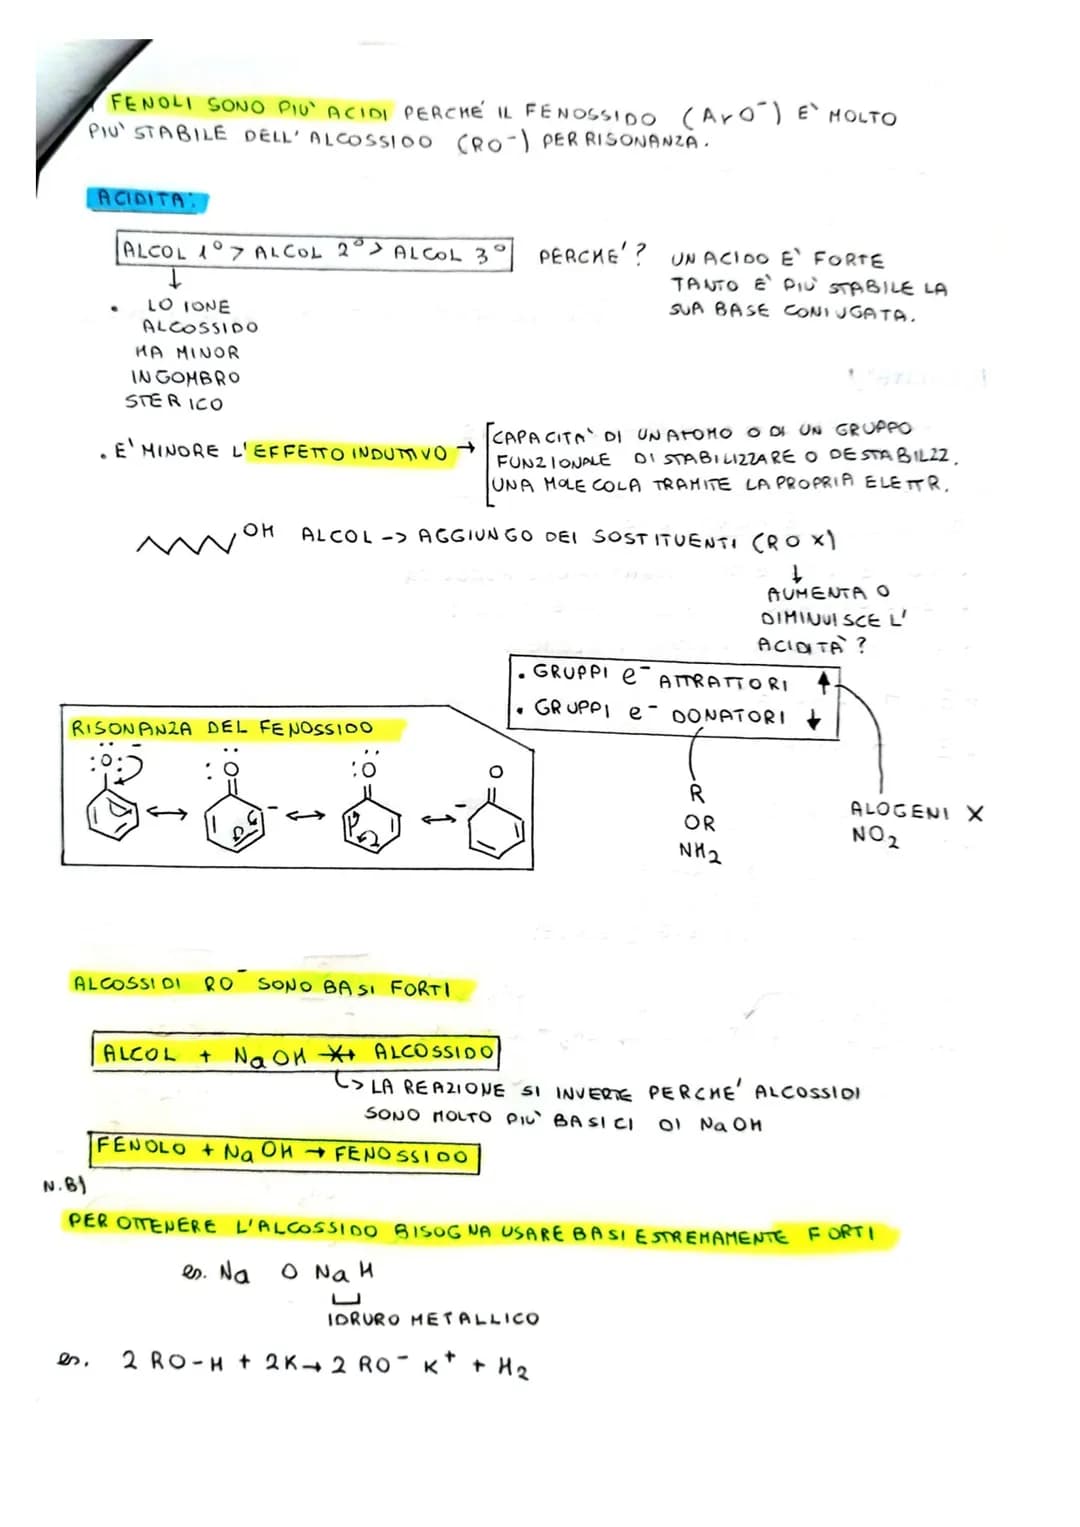 FENOLI SONO PIU' ACIDI PERCHÉ IL FENOSSIDO (ArO⁻) E' MOLTO
PIU' STABILE DELL'ALCOSSIDO (RO⁻) PER RISONANZA.
ACIDITA':
ALCOL 1° > ALCOL 2° > ALCOL 3° PERCHE'? UN ACIDO E' FORTE
TANTO E' PIU' STABILE LA
SUA BASE CONIUGATA.
↓
• LO IONE
ALCOSSIDO
HA MINOR
INGOMBRO
STERICO
• E' MINORE L'EFFETTO INDUTTIVO → CAPACITA' DI UN ATOMO O DI UN GRUPPO
FUNZIONALE DI STABILIZZARE O DESTABILIZZ.
UNA MOLECOLA TRAMITE LA PROPRIA ELETTR.
OH ALCOL -> AGGIUNGO DEI SOSTITUENTI (ROX)
↓
AUMENTA O
DIMINUISCE L'
ACIDITA'?
• GRUPPI e⁻ ATTRATTORI ↑
• GRUPPI e⁻ DONATORI ↓
R
OR
NH₂
ALOGENI X
NO₂
RISONANZA DEL FENOSSIDO
:O:⁻ :O :O O
↔ ⁻ ↔ ↔ ⁻
ALCOSSIDI RO⁻ SONO BASI FORTI
ALCOL + NaOH ↛ ALCOSSIDO
↳ LA REAZIONE SI INVERTE PERCHE' ALCOSSIDI
SONO MOLTO PIU' BASICI DI NaOH
FENOLO + NaOH → FENOSSIDO
N.B)
PER OTTENERE L'ALCOSSIDO BISOGNA USARE BASI ESTREMAMENTE FORTI
es. Na O NaH
IDRURO METALLICO
es. 2 RO-H + 2K → 2 RO⁻ K⁺ + H₂